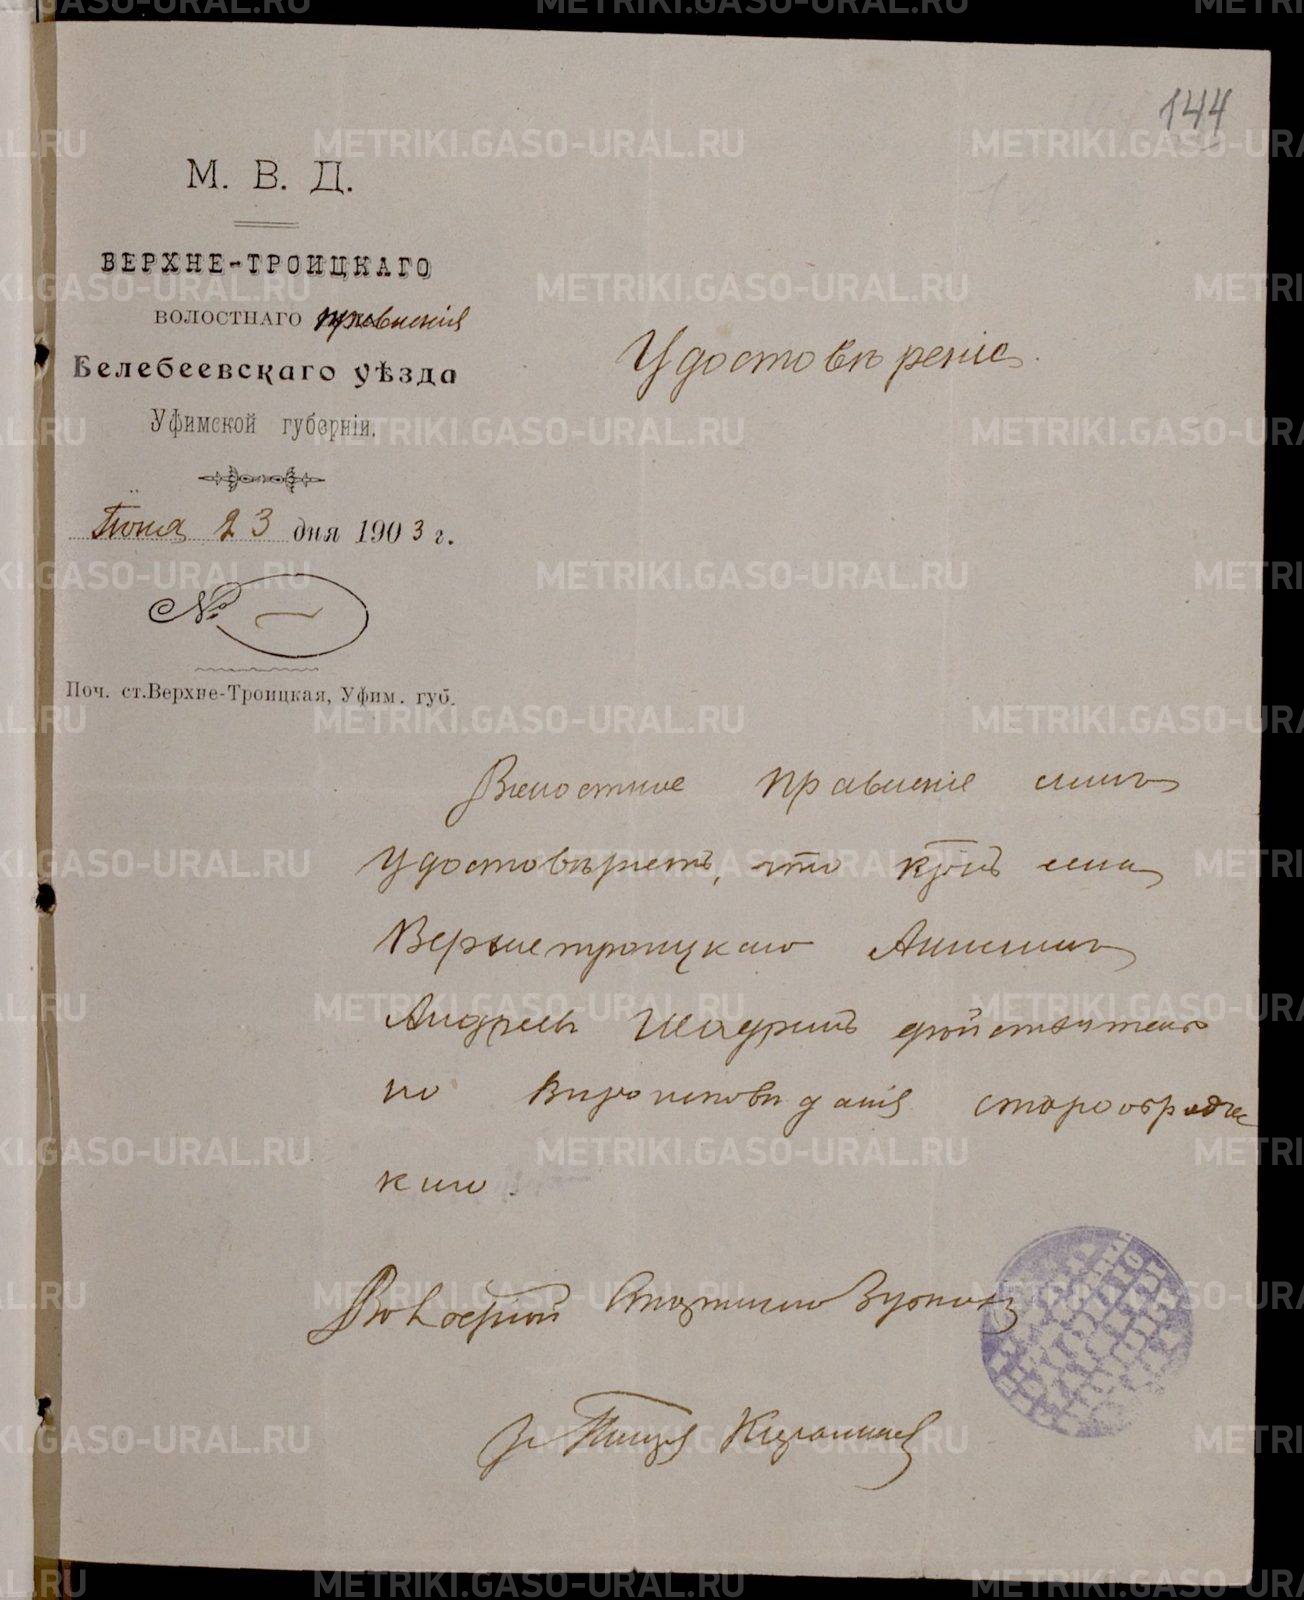 144
М. В. Д.
ВЕРХНЕ-ТРОИЦКАГО
ВОЛОСТНАГО правленія
Белебеевскаго уѣзда
Уфимской губерніи.
Іюня 23 дня 1903 г.
№ —
Поч. ст. Верхне-Троицкая, Уфим. губ.
Удостовѣреніе.
Волостное правленіе симъ
удостовѣряетъ, что кр-нъ села
Верхнетроицкаго Анисимъ
Андреевъ Шадринъ действитель
но вѣроисповѣданія старообрядчес
каго.
Волостной
За Писаря
METRIKI.GASO-URAL.RU